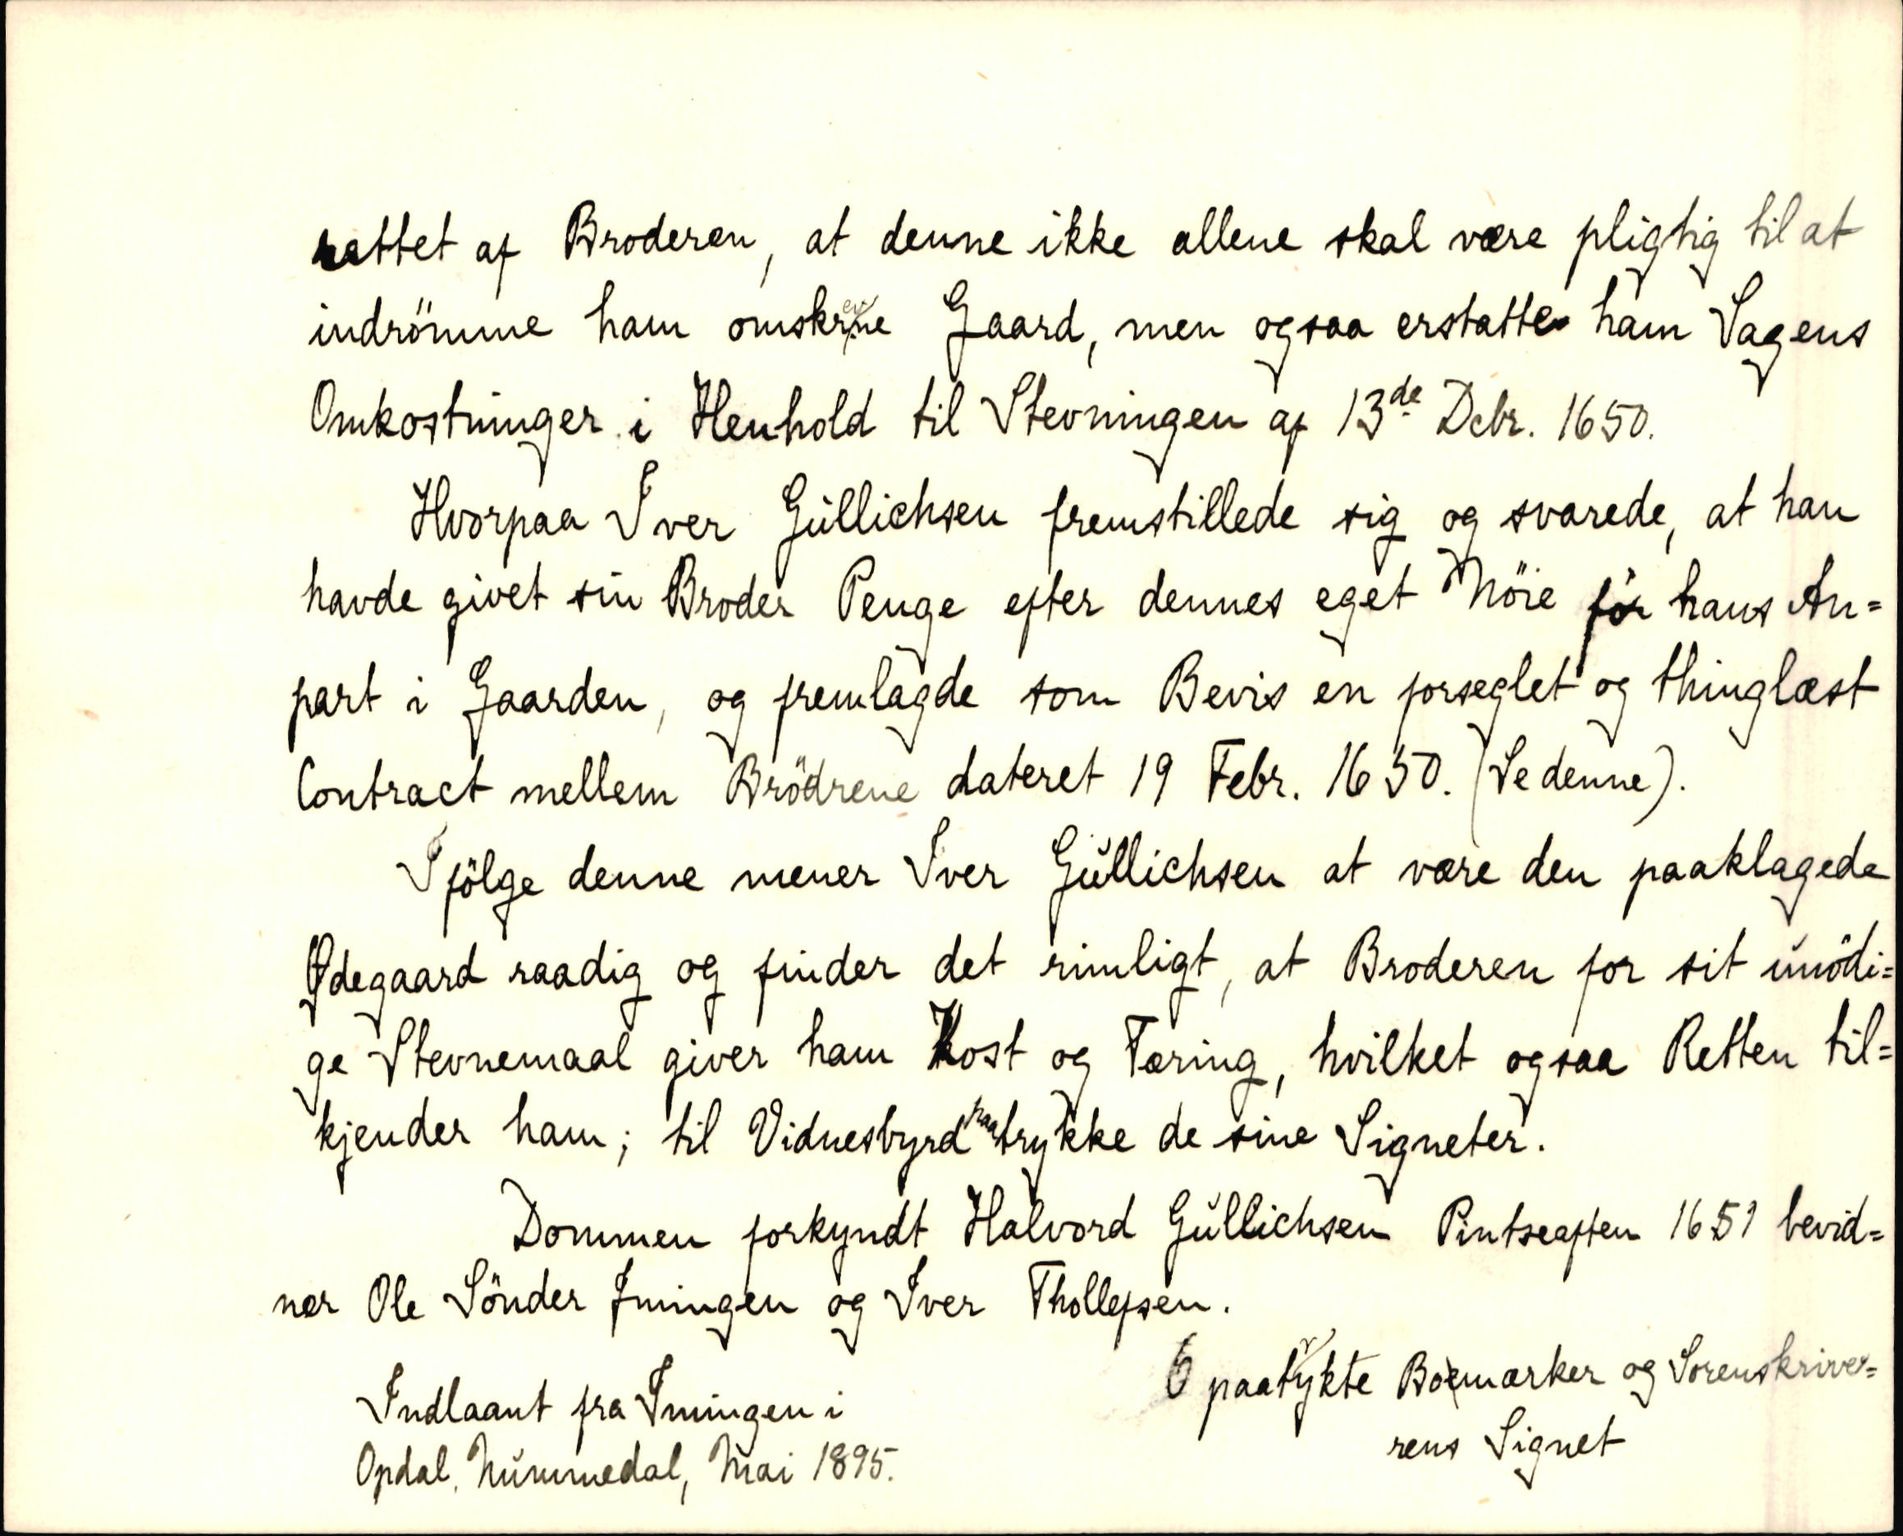 rettet af Broderen, at denne ikke allene skal være pligtig til at
indrömme ham omskrevne Gaard, men ogsaa erstatte ham Sagens
Omkostninger i Henhold til Stevningen af 13de Dcbr. 1650.
Hvorpaa Iver Gŭllichsen fremstillede sig og svarede, at han
havde givet sin Broder Penge efter dennes eget Nöie för hans An=
part i Gaarden, og fremlagde som Bevis en forseglet og thinglæst
Contract mellem Brödrene dateret 19 Febr. 1650. (Se denne).
Ifölge denne mener Iver Gŭllichsen at være den paaklagede
Ødegaard raadig og finder det rimligt, at Broderen for sit ŭnödi=
ge Stevnemaal giver ham Kost og Tæring, hvilket ogsaa Retten til=
kjender ham; til Vidnesbyrd paatrykke de sine Signeter.
Dommen forkyndt Halvord Gŭllichsen Pintseaften 1651 bevid=
ner Ole Sönder Imingen og Iver Thollefsen.
6 paatrykte Boemærker og Sorenskrive=
rens Signet
Indlaant fra Imingen i
Opdal, Nŭmmedal, Mai 1895.